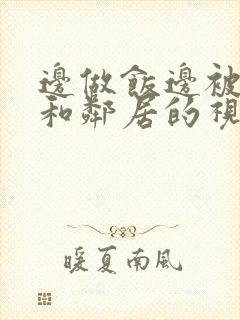 邊做飯邊被
和鄰居的視
暖夏南風